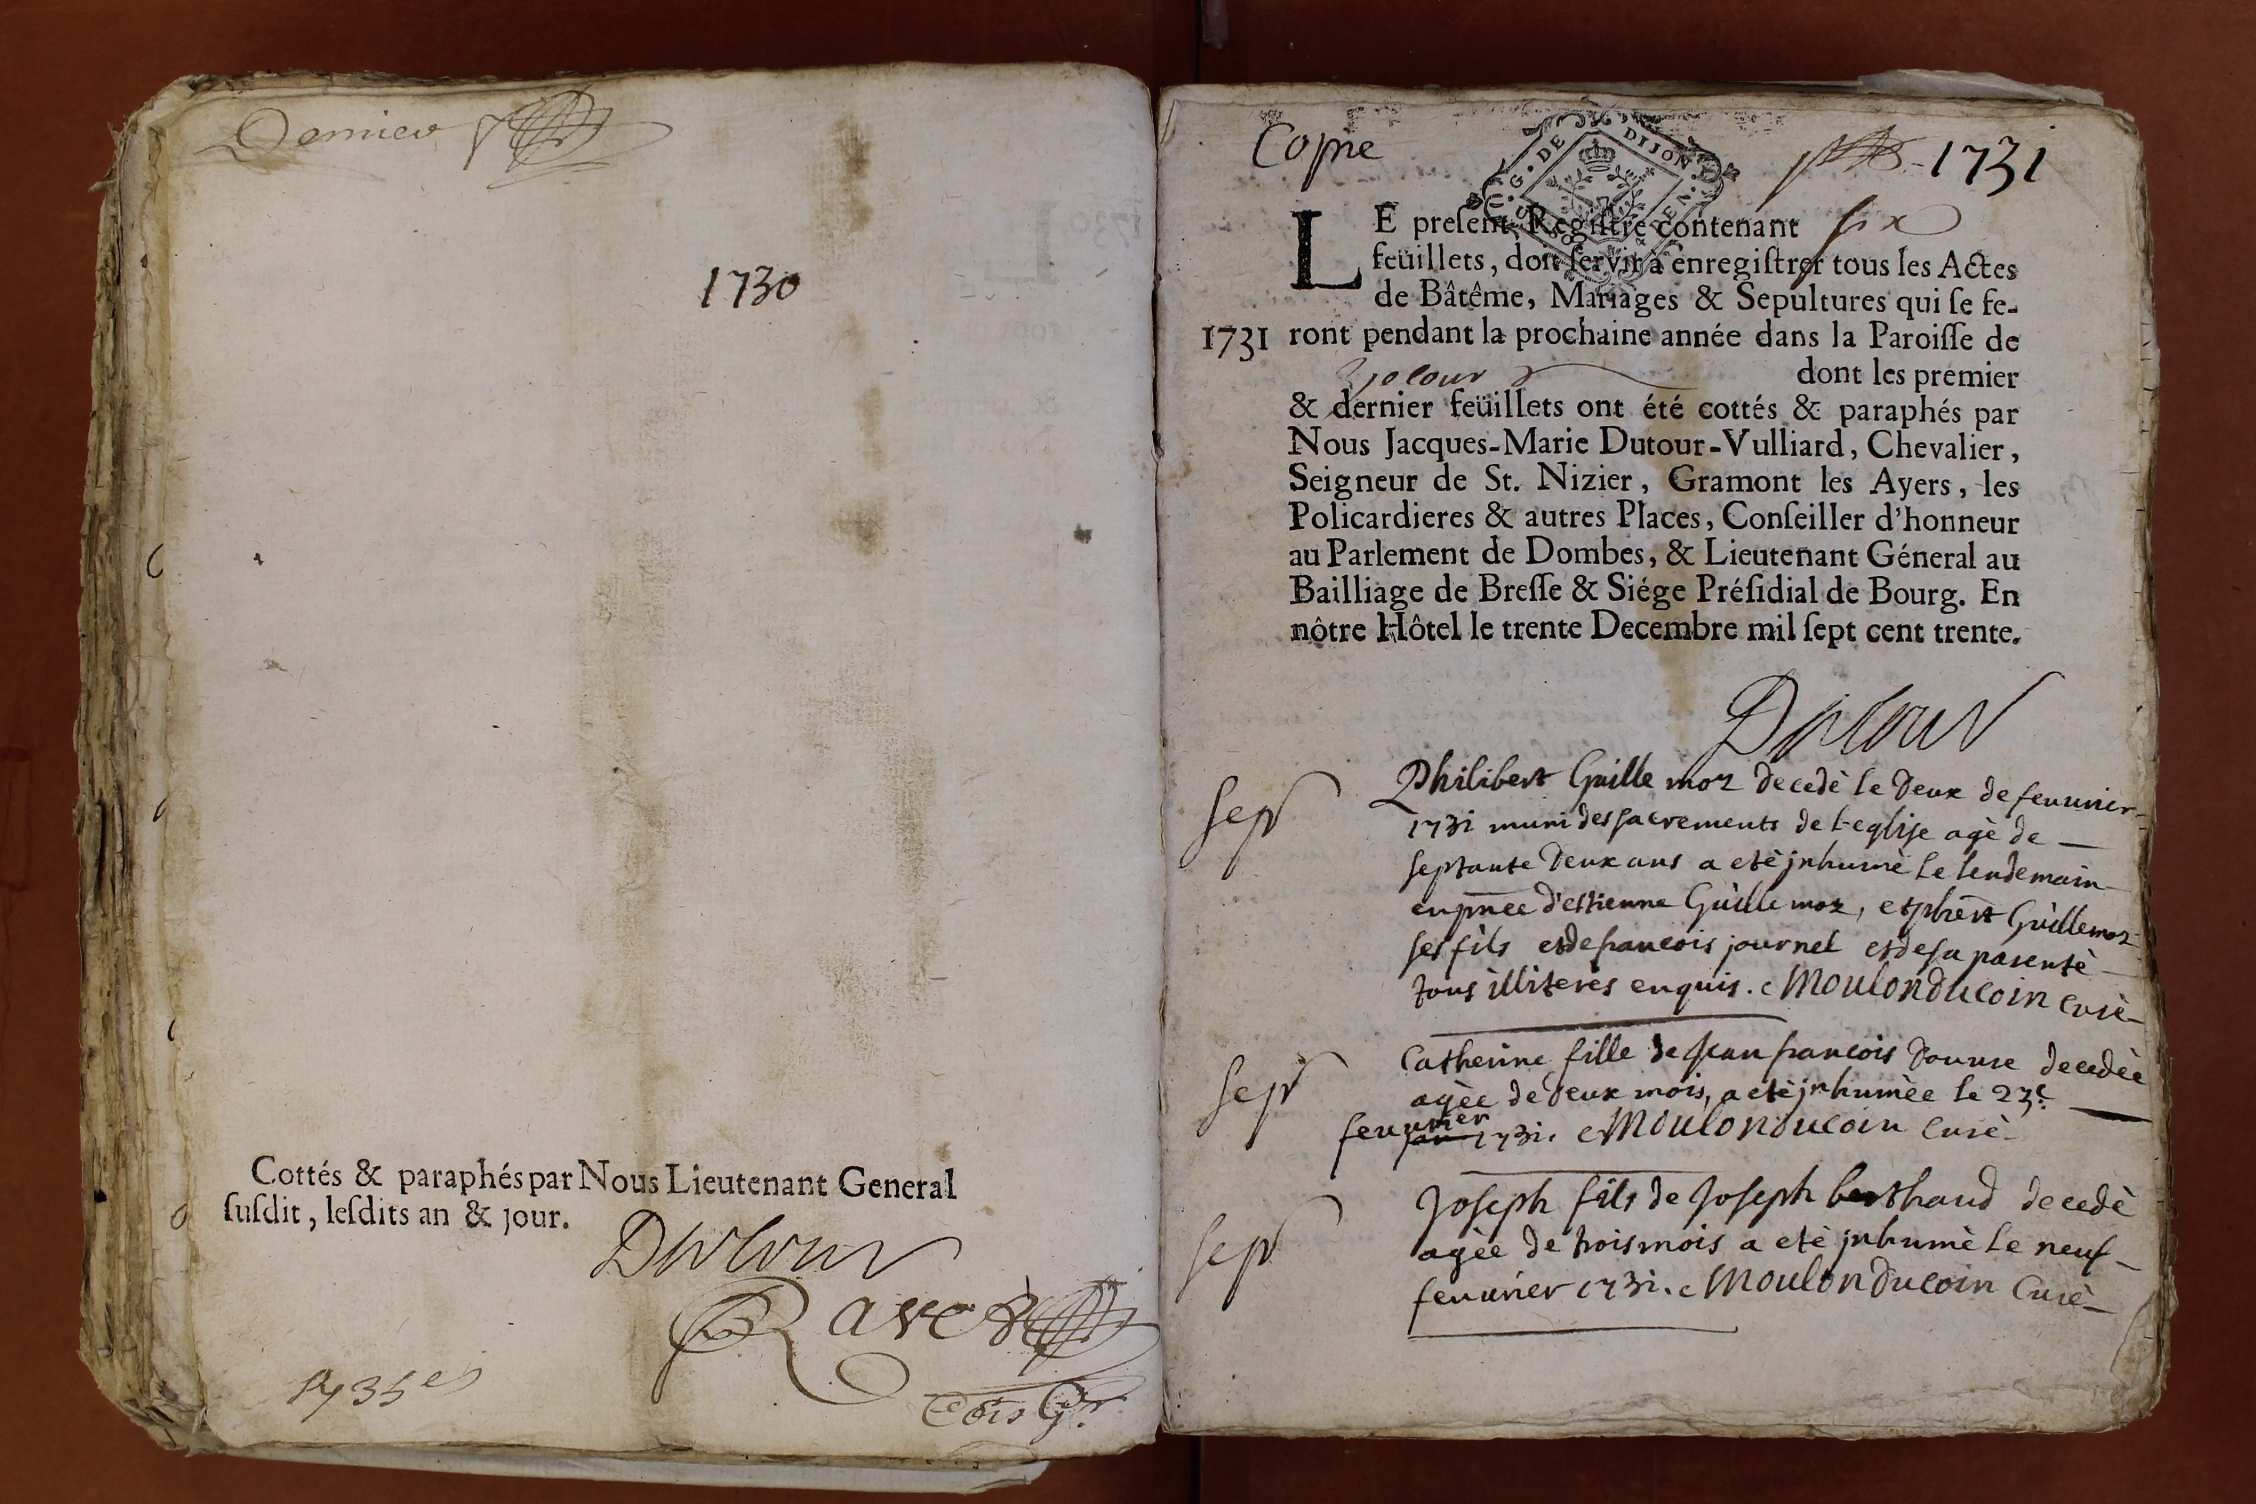 Dernier
1730
Cottés & paraphés par Nous Lieutenant General
ſuſdit, leſdits an & jour.
Dutour
Copie
1731
G. DE DIJON GEN.
LE preſent Regiſtre contenant six
feüillets, doit ſervir à enregiſtrer tous les Actes
de Bâtême, Mariages & Sepultures qui ſe fe-
1731 ront pendant la prochaine année dans la Paroiſſe de
dont les premier
& dernier feüillets ont été cottés & paraphés par
Nous Jacques-Marie Dutour-Vulliard, Chevalier,
Seigneur de St. Nizier, Gramont les Ayers, les
Policardieres & autres Places, Conſeiller d'honneur
au Parlement de Dombes, & Lieutenant Géneral au
Bailliage de Breſſe & Siége Préſidial de Bourg. En
nôtre Hôtel le trente Decembre mil ſept cent trente.
Dutour
sep Philibert Guillemoz decedè le deux de feuurier
1731 muni des sacrements de l'eglise agè de
septante deux ans a etè jnhumè le lendemain
en pnce d'estienne Guillemoz, et phert Guillemoz
ses fils et de francois journel et de sa parentè
tous illiterès enquis. Moulonducoin curè
sep Catherine fille de Jean francois decedèe
agèe de deux mois, a etè jnhumèe le 23e
feuurier 1731. Moulonducoin curè
sep Joseph fils de Joseph berthaud decedè
agèe de trois mois a etè jnhumè le neuf
feuurier 1731. Moulonducoin Curè